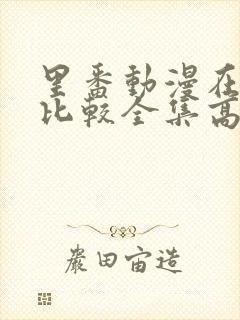 里番動漫在
比較全集高
嚴田宙造